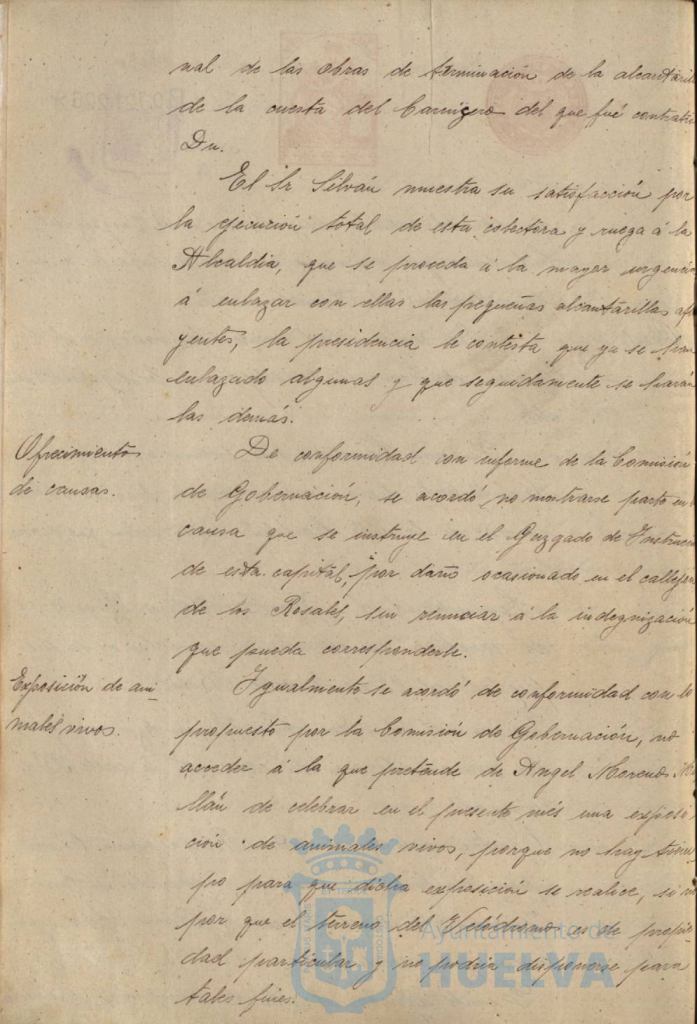 nal de las obras de terminación de la alcantarilla
de la cuesta del Carnicero del que fué contratis
Dn.
El Sr Silván muestra su satisfacción por
la ejecución total de esta colectora y ruega á la
Alcaldia, que se proceda á la mayor urgencia
á enlazar con ellas las pequeñas alcantarillas aflu
yentes; la presidencia le contesta que ya se han
enlazado algunas y que seguidamente se harán
las demás.
Ofrecimientos
de causas.
De conformidad con informe de la Comisión
de Gobernación, se acordó no mostrarse parte en
causa que se instruye en el Juzgado de Instrucc
de esta capital, por daño ocasionado en el callejon
de los Rosales, sin renunciar á la indegnización
que pueda corresponderle.
Exposición de ani-
males vivos.
Igualmente se acordó de conformidad con lo
propuesto por la Comisión de Gobernación, no
acceder á la que pretende de Angel Moreno
llán de celebrar en el presente més una exposi
ción de animales vivos, porque no hay tiem
po para que dicha exposición se realice, si no
por que el terreno del Velódromo es de propie
dad particular y no podria disponerse para
tales fines.
Ayuntamiento de
HUELVA